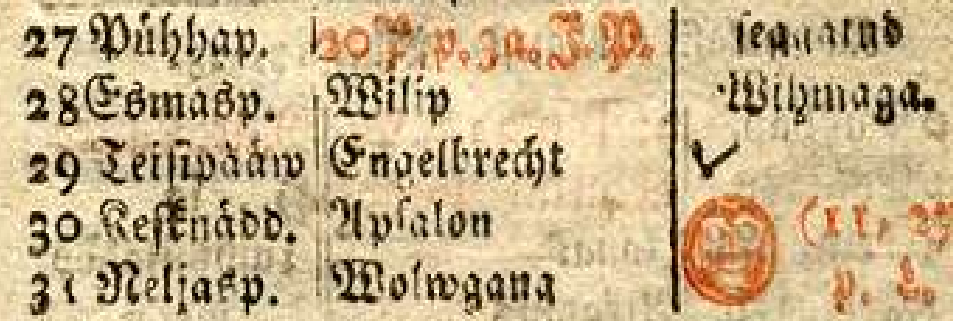 27 Pühhap. 20 P. p. 3a. J. P. segganud
28 Esmasp. Wilip Wihmaga.
29 Teisipääw Engelbrecht
30 Kesknädd. Apsalon (11, 27
31 Neljasp. Wolwgang p. L.